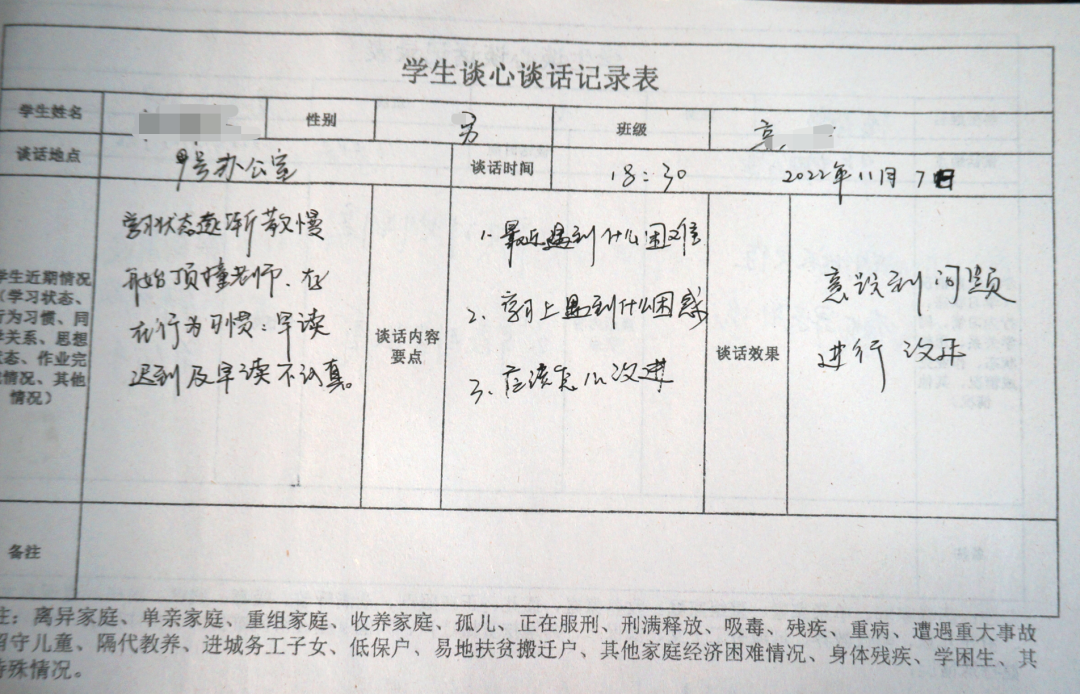 学生谈心谈话记录表
学生姓名 性别 男 班级
谈话地点 9号办公室 谈话时间 18:30 2022年11月7日
学生近期情况
（学习状态、
行为习惯、同
学关系、思想
状态、作业完
成情况、其他
情况）
学习状态逐渐散慢
开始顶撞老师、在
在行为习惯：早读
迟到及早读不认真。
谈话内容
要点
1. 最近遇到什么困难
2. 学习上遇到什么困惑
3、应该怎么改进
谈话效果
意识到问题
进行改正
备注
注：离异家庭、单亲家庭、重组家庭、收养家庭、孤儿、正在服刑、刑满释放、吸毒、残疾、重病、遭遇重大事故
留守儿童、隔代教养、进城务工子女、低保户、易地扶贫搬迁户、其他家庭经济困难情况、身体残疾、学困生、其
特殊情况。